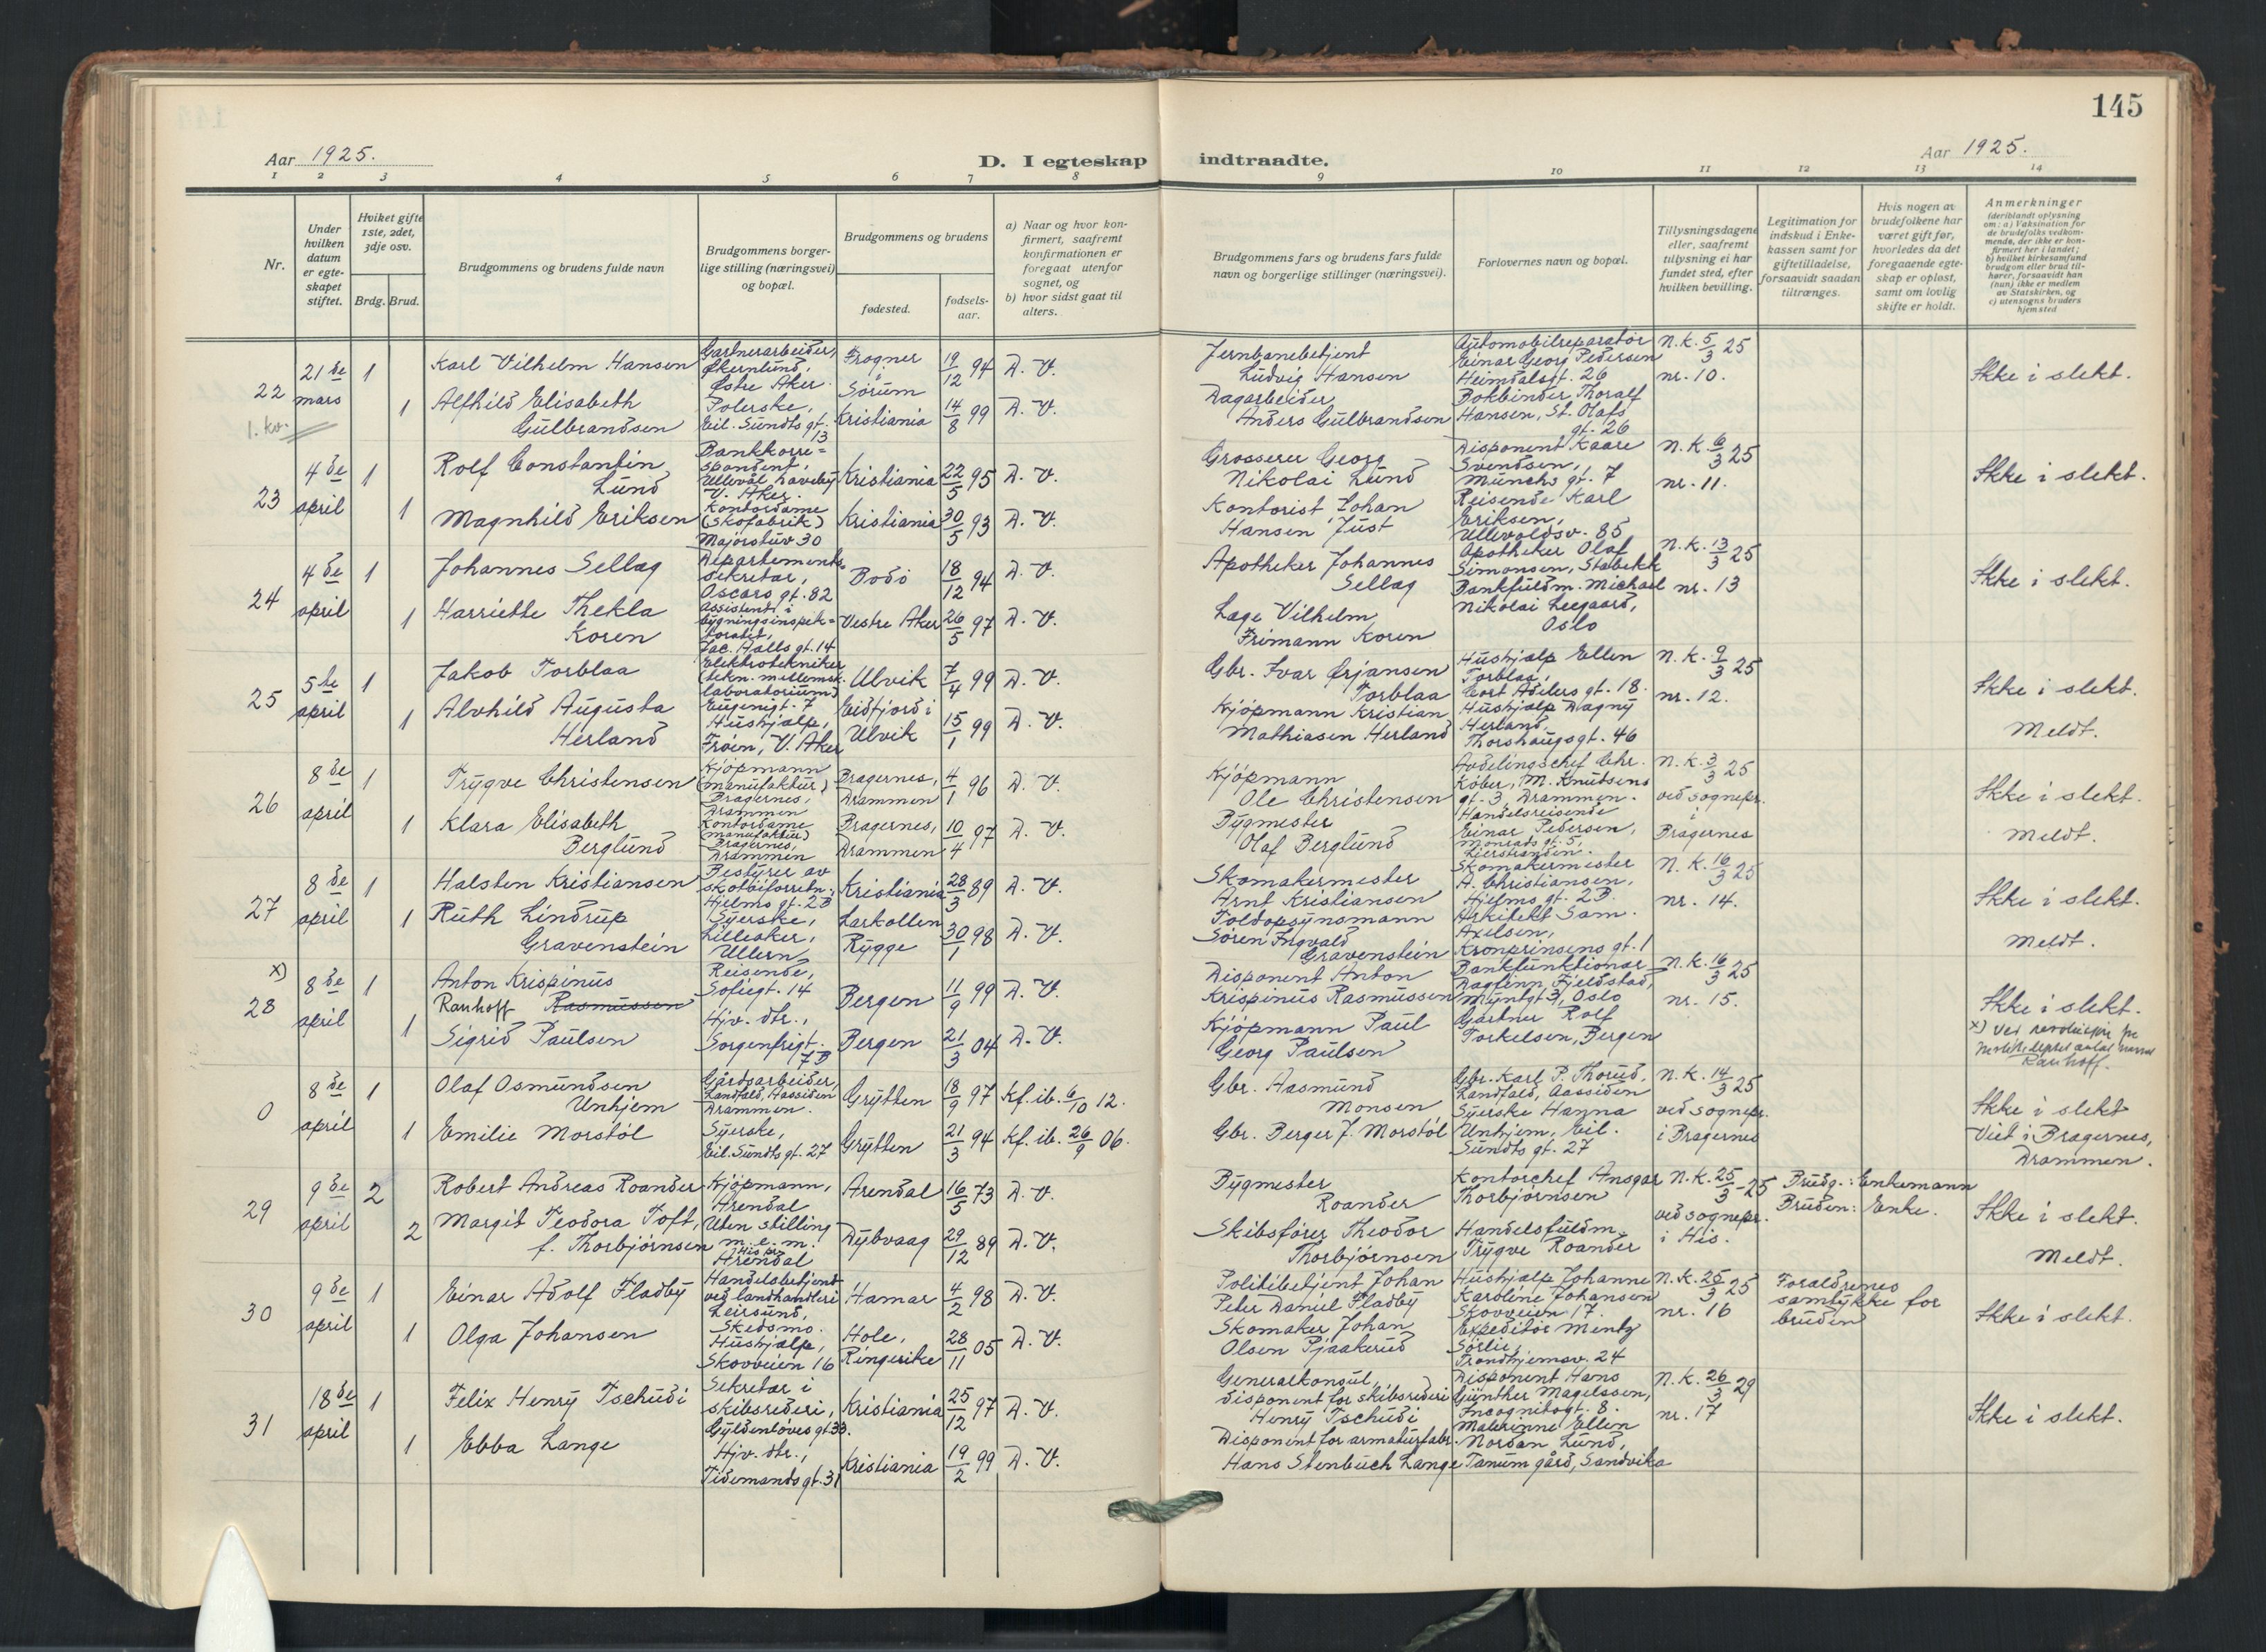 145
Aar 1925.
D. I egteskap indtraadte.
Aar 1925.
1 2 3 4 5 6 7 8 9 10 11 12 13 14
Nr.
Under hvilken datum er egteskapet stiftet.
Hvilket gifte 1ste, 2det, 3dje osv.
Brdg. Brud.
Brudgommens og brudens fulde navn
Brudgommens borgerlige stilling (næringsvei) og bopæl.
Brudgommens og brudens
fødested.
fødselsaar.
a) Naar og hvor konfirmert, saafremt konfirmationen er foregaat utenfor sognet, og
b) hvor sidst gaat til alters.
Brudgommens fars og brudens fars fulde navn og borgerlige stillinger (næringsvei).
Forlovernes navn og bopæl.
Tillysningsdagene eller, saafremt tillysning ei har fundet sted, efter hvilken bevilling.
Legitimation for indskud i Enkekassen samt for giftetilladelse, forsaavidt saadan tiltrænges.
Hvis nogen av brudefolkene har været gift før, hvorledes da det foregaaende egteskap er opløst, samt om lovlig skifte er holdt.
Anmerkninger
(deriblandt oplysning om: a) Vaksination for de brudefolks vedkommende, der ikke er konfirmert her i landet; b) hvilket kirkesamfund brudgom eller brud tilhører, forsaavidt han (hun) ikke er medlem av Statskirken, og c) utensogns bruders hjemsted
22 21de mars 1 Karl Vilhelm Hansen Gartnerarbeider, Økernlund, Østre Aker. Frogner i Sørum 19/12 94 D. V. Jernbanebetjent Ludvig Hansen Automobilreparatør Einar Georg Pedersen Heimdalsgt. 26 N.K. 5/3 25 nr. 10. Ikke i slekt.
1 Alfhild Elisabeth Gulbrandsen Polerske, Eil. Sundts gt. 13 Kristiania 14/8 99 D. V. Dagarbeider Anders Gulbrandsen Bokbinder Thoralf Hansen, St. Olafs gt. 26
1. kv.
23 4de april 1 Rolf Constantin Lund Bankkorrespondent, Ullevål haveby V. Aker. Kristiania 22/5 95 D. V. Grosserer Georg Nikolai Lund Disponent Kaare Svendsen, Munchs gt. 7 N.K. 6/3 25 nr. 11. Ikke i slekt.
1 Magnhild Eriksen Kontordame (Skofabrik) Majorstuv 30 Kristiania 30/5 93 D. V. Kontorist Johan Hansen Just Reisende Karl Eriksen, Ullevoldsv. 85
24 4de april 1 Johannes Sellæg Departementssekretær, Oscars gt. 82 Bodö 18/12 94 D. V. Apotheker Johannes Sellæg Apotheker Olaf Simonsen, Stabekk N.K. 13/3 25 nr. 13 Ikke i slekt.
1 Harriette Thekla Koren Assistent i bygningsinspektoratet, Jac. Aalls gt. 14 Vestre Aker 26/5 97 D. V. Læge Vilhelm Frimann Koren Bankfuldm. Michael Nikolai Leegaard, Oslo
25 5te april 1 Jakob Torblaa Elektrotekniker (tekn. mellomsk. laboratorium) Eugenigt. 7 Ulvik 7/4 99 D. V. Gbr. Ivar Ørjansen Torblaa Hushjælp Ellen Torblaa, Cort Adelers gt. 18. N.K. 9/3 25 nr. 12. Ikke i slekt. Meldt.
1 Alvhild Augusta Herland Hushjælp, Frøen, V. Aker Eidfjord i Ulvik 15/1 99 D. V. Kjöpmann Kristian Mathiasen Herland Hushjælp Dagny Herland, Thorshaugsgt. 46
26 8de april 1 Trygve Christensen Kjöpmann (manufaktur) Bragernes, Drammen Bragernes, Drammen 4/1 96 D. V. Kjöpmann Ole Christensen Avdelingschef Chr. Köber, M. Knudsens gt. 3, Drammen. N.K. 3/3 25 ved sognepr. i Bragernes Ikke i slekt. Meldt.
1 Klara Elisabeth Berglund Kontordame (manufaktur) Bragernes, Drammen Bragernes, Drammen 10/4 97 D. V. Bygmester Olaf Berglund Handelsreisende Einar Pedersen, Monrads gt. 5, Lierstranden.
27 8de april 1 Halsten Kristiansen Bestyrer av skotöiforretn. Hjelms gt. 2B Kristiania 28/3 89 D. V. Skomakermester Arnt Kristiansen Skomakermester A. Christiansen, Hjelms gt. 2B. N.K. 16/3 25 nr. 14. Ikke i slekt. Meldt.
1 Ruth Lindrup Gravenstein Syerske, Lilleaker, Ullern Larkollen Rygge 30/1 98 D. V. Toldopsynsmann Sören Ingvald Gravenstein Arkitekt Sam. Axelsen, Kronprinsens gt. 1
x) 28 8de april 1 Anton Krispinus Rasmussen Ranhoff Reisende, Sofiegt. 14 Bergen 11/9 99 D. V. Disponent Anton Krispinus Rasmussen Bankfunktionær Dagfinn Fjeldstad, Myntgt 3, Oslo N.K. 16/3 25 nr. 15. Ikke i slekt.
x) Ved resolusjon fra Justitsdepet antat navnet Ranhoff.
1 Sigrid Paulsen Hjv. dtr., Sorgenfrigt. 7B Bergen 21/3 04 D. V. Kjöpmann Paul Georg Paulsen Gartner Rolf Torkelsen, Bergen
0 8de april 1 Olaf Osmundsen Unhjem Gårdsarbeider, Landfald, Aassiden Drammen. Grytten 18/9 97 Kf. ib. 6/10 12. Gbr. Aasmund Monsen Gbr. Karl P. Thorud, Landfald, Aassiden N.K. 14/3 25 ved sognepr. i Bragernes Ikke i slekt Viet i Bragernes, Drammen.
1 Emilie Morstöl Syerske, Eil. Sundts gt. 27 Grytten 21/3 94 Kf. ib. 26/9 06. Gbr. Berger J. Morstöl Syerske Hanna Unhjem, Eil. Sundts gt. 27
29 9de april 2 Robert Andreas Roander Kjöpmann, Arendal Arendal 16/5 73 D. V. Bygmester Roander Kontorchef Ansgar Thorbjörnsen N.K. 25/3-25 ved sognepr. i His. Brudg.: Enkemann Bruden: Enke. Ikke i slekt. Meldt.
2 Margit Teodora Toft, f. Thorbjörnsen Uten stilling m. e. m. His pr. Arendal Dybvaag 29/12 89 D. V. Skibsförer Theodor Thorbjörnsen Handelsfuldm. Trygve Roander
30 9de april 1 Einar Adolf Fladby Handelsbetjent ved landhandleri Leirsund, Skedsmo. Hamar 4/2 98 D. V. Politibetjent Johan Peter Daniel Fladby Hushjælp Johanne Karoline Johansen Skovveien 17. N.K. 25/3 25 nr. 16 Forældrenes samtykke for bruden Ikke i slekt.
1 Olga Johansen Hushjælp, Skovveien 16 Hole, Ringerike 28/11 05 D. V. Skomaker Johan Olsen Pjaakerud Expeditör Mentz Sörlie, Trondhjemsv. 24
31 18de april 1 Felix Henry Tschudi Sekretær i skibsrederi, Gyldenlöves gt 33. Kristiania 25/12 97 D. V. Generalkonsul, disponent for skibsrederi Henry Tschudi Disponent Hans Günther Magelssen, Incognitogt. 8. N.K. 26/3 29 nr. 17 Ikke i slekt.
1 Ebba Lange Hjv. dtr., Tidemands gt. 31 Kristiania 19/2 99 D. V. Disponent for armaturfabr. Hans Stenbuch Lange Malerinne Ellen Nordan Lund, Tanum gård, Sandvika